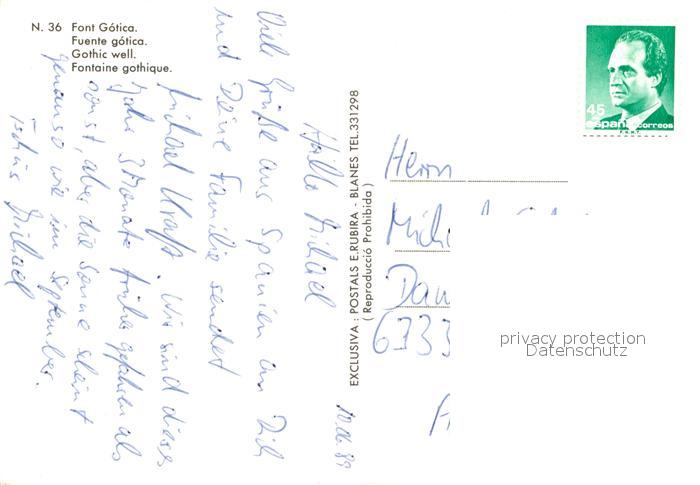 N. 36 Font Gótica.
Fuente gótica.
Gothic well.
Fontaine gothique.
10.06.89
Hallo Michael
Viele Grüße aus Spanien an Dich
und Deine Familie sendet
Michael Wir sind dieses
Jahr 3 Monate früher gefahren als
sonst, aber die Sonne scheint
genauso wie im September.
Tschüs Michael
EXCLUSIVA: POSTALS E.RUBIRA - BLANES TEL.331298
(Reproducció Prohibida)
45
españa correos
Herrn
Mich
Dau
6733
privacy protection
Datenschutz